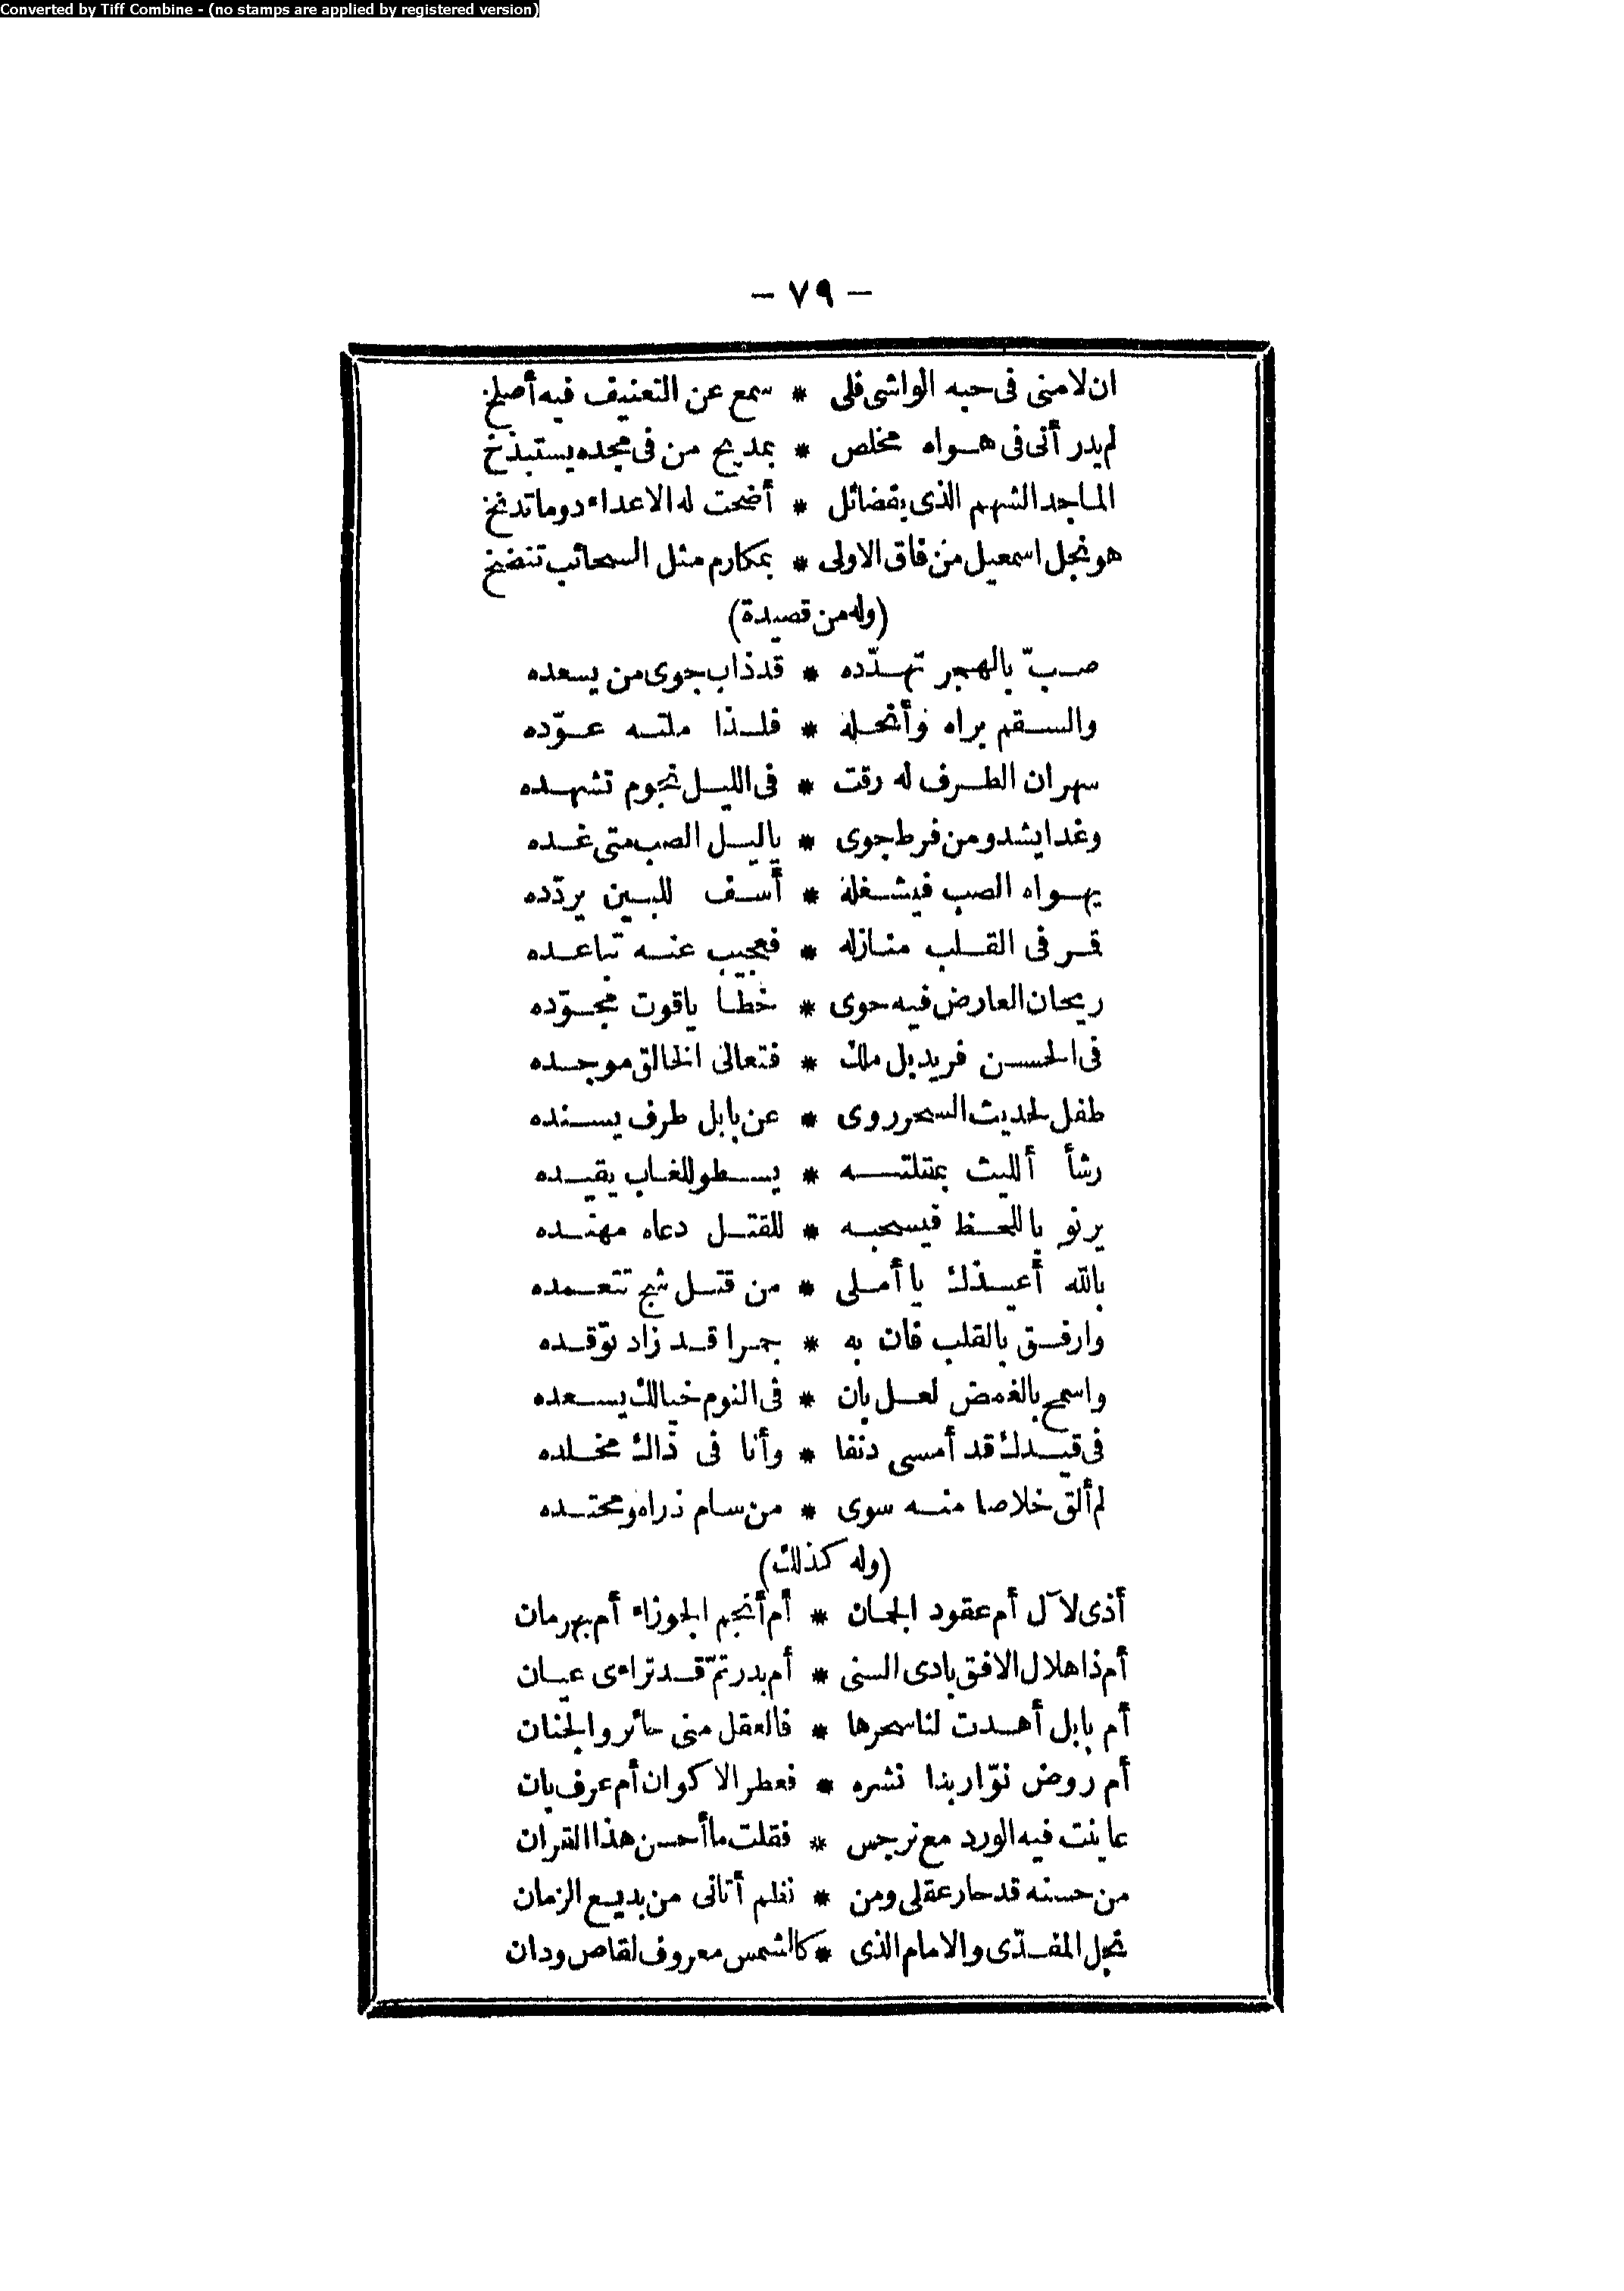 Converted by Tiff Combine - (no stamps are applied by registered version)
— ٧٩ —
ان لامنى فى حبه الواشى فلى * سمع عن التعنيف فيه أصلخ
لم يدر أنى فى هواه مخلص * بمديح من فى مجده يستبذخ
الماجد الشهم الذى بفضائل * أضحت له الاعداء دوما تدنخ
هو نجل اسمعيل من فاق الاولى * بمكارم مثل السحائب تنضخ
(وله من قصيدة)
صبّ بالهجر تهدّده * قد ذاب جوى من يسعده
والسقم براه وأنحله * فلذا ملته عوّده
سهران الطرف له رقت * فى الليل نجوم تشهده
وغدا يشدو من فرط جوى * ياليل الصب متى غده
يهواه الصب فيشغله * أسف للبين يردّده
قمر فى القلب منازله * فعجيب عنه تباعده
ريحان العارض فيه حوى * خطا ياقوت مجوّده
فى الحسن فريد بل ملك * فتعالى الخالق موجده
طفل لحديث السحر روى * عن بابل طرف يسنده
رشأ ألليث بمقلته * يسطو للغاب يقيده
يرنو باللحظ فيسحبه * للقتل دعاه مهنده
بالله أعيذك يا أملى * من قتل شج تتعمده
وارفق بالقلب فان به * جمرا قد زاد توّقده
واسمح بالغمض لعل بان * فى النوم خيالك يسعده
فى قيدك قد أمسى دنفا * وأنا فى ذاك مخلده
لم ألق خلاصا منه سوى * من سام ذراه ومحتده
(وله كذلك)
أذى لآل أم عقود الجمان * أم أنجم الجوزاء أم بهرمان
أم ذا هلال الافق بادى السنى * أم بدر تمّ قد تراءى عيان
أم بابل أهدت لنا سحرها * فالعقل منى حائر والجنان
أم روض نوّار بدا نشره * فعطر الاكوان أم عرف بان
عاينت فيه الورد مع نرجس * فقلت ما أحسن هذا القران
من حسنه قد حار عقلى ومن * نظم أتانى من بديع الزمان
نجل المفدّى والامام الذى * كالشمس معروف لقاص ودان